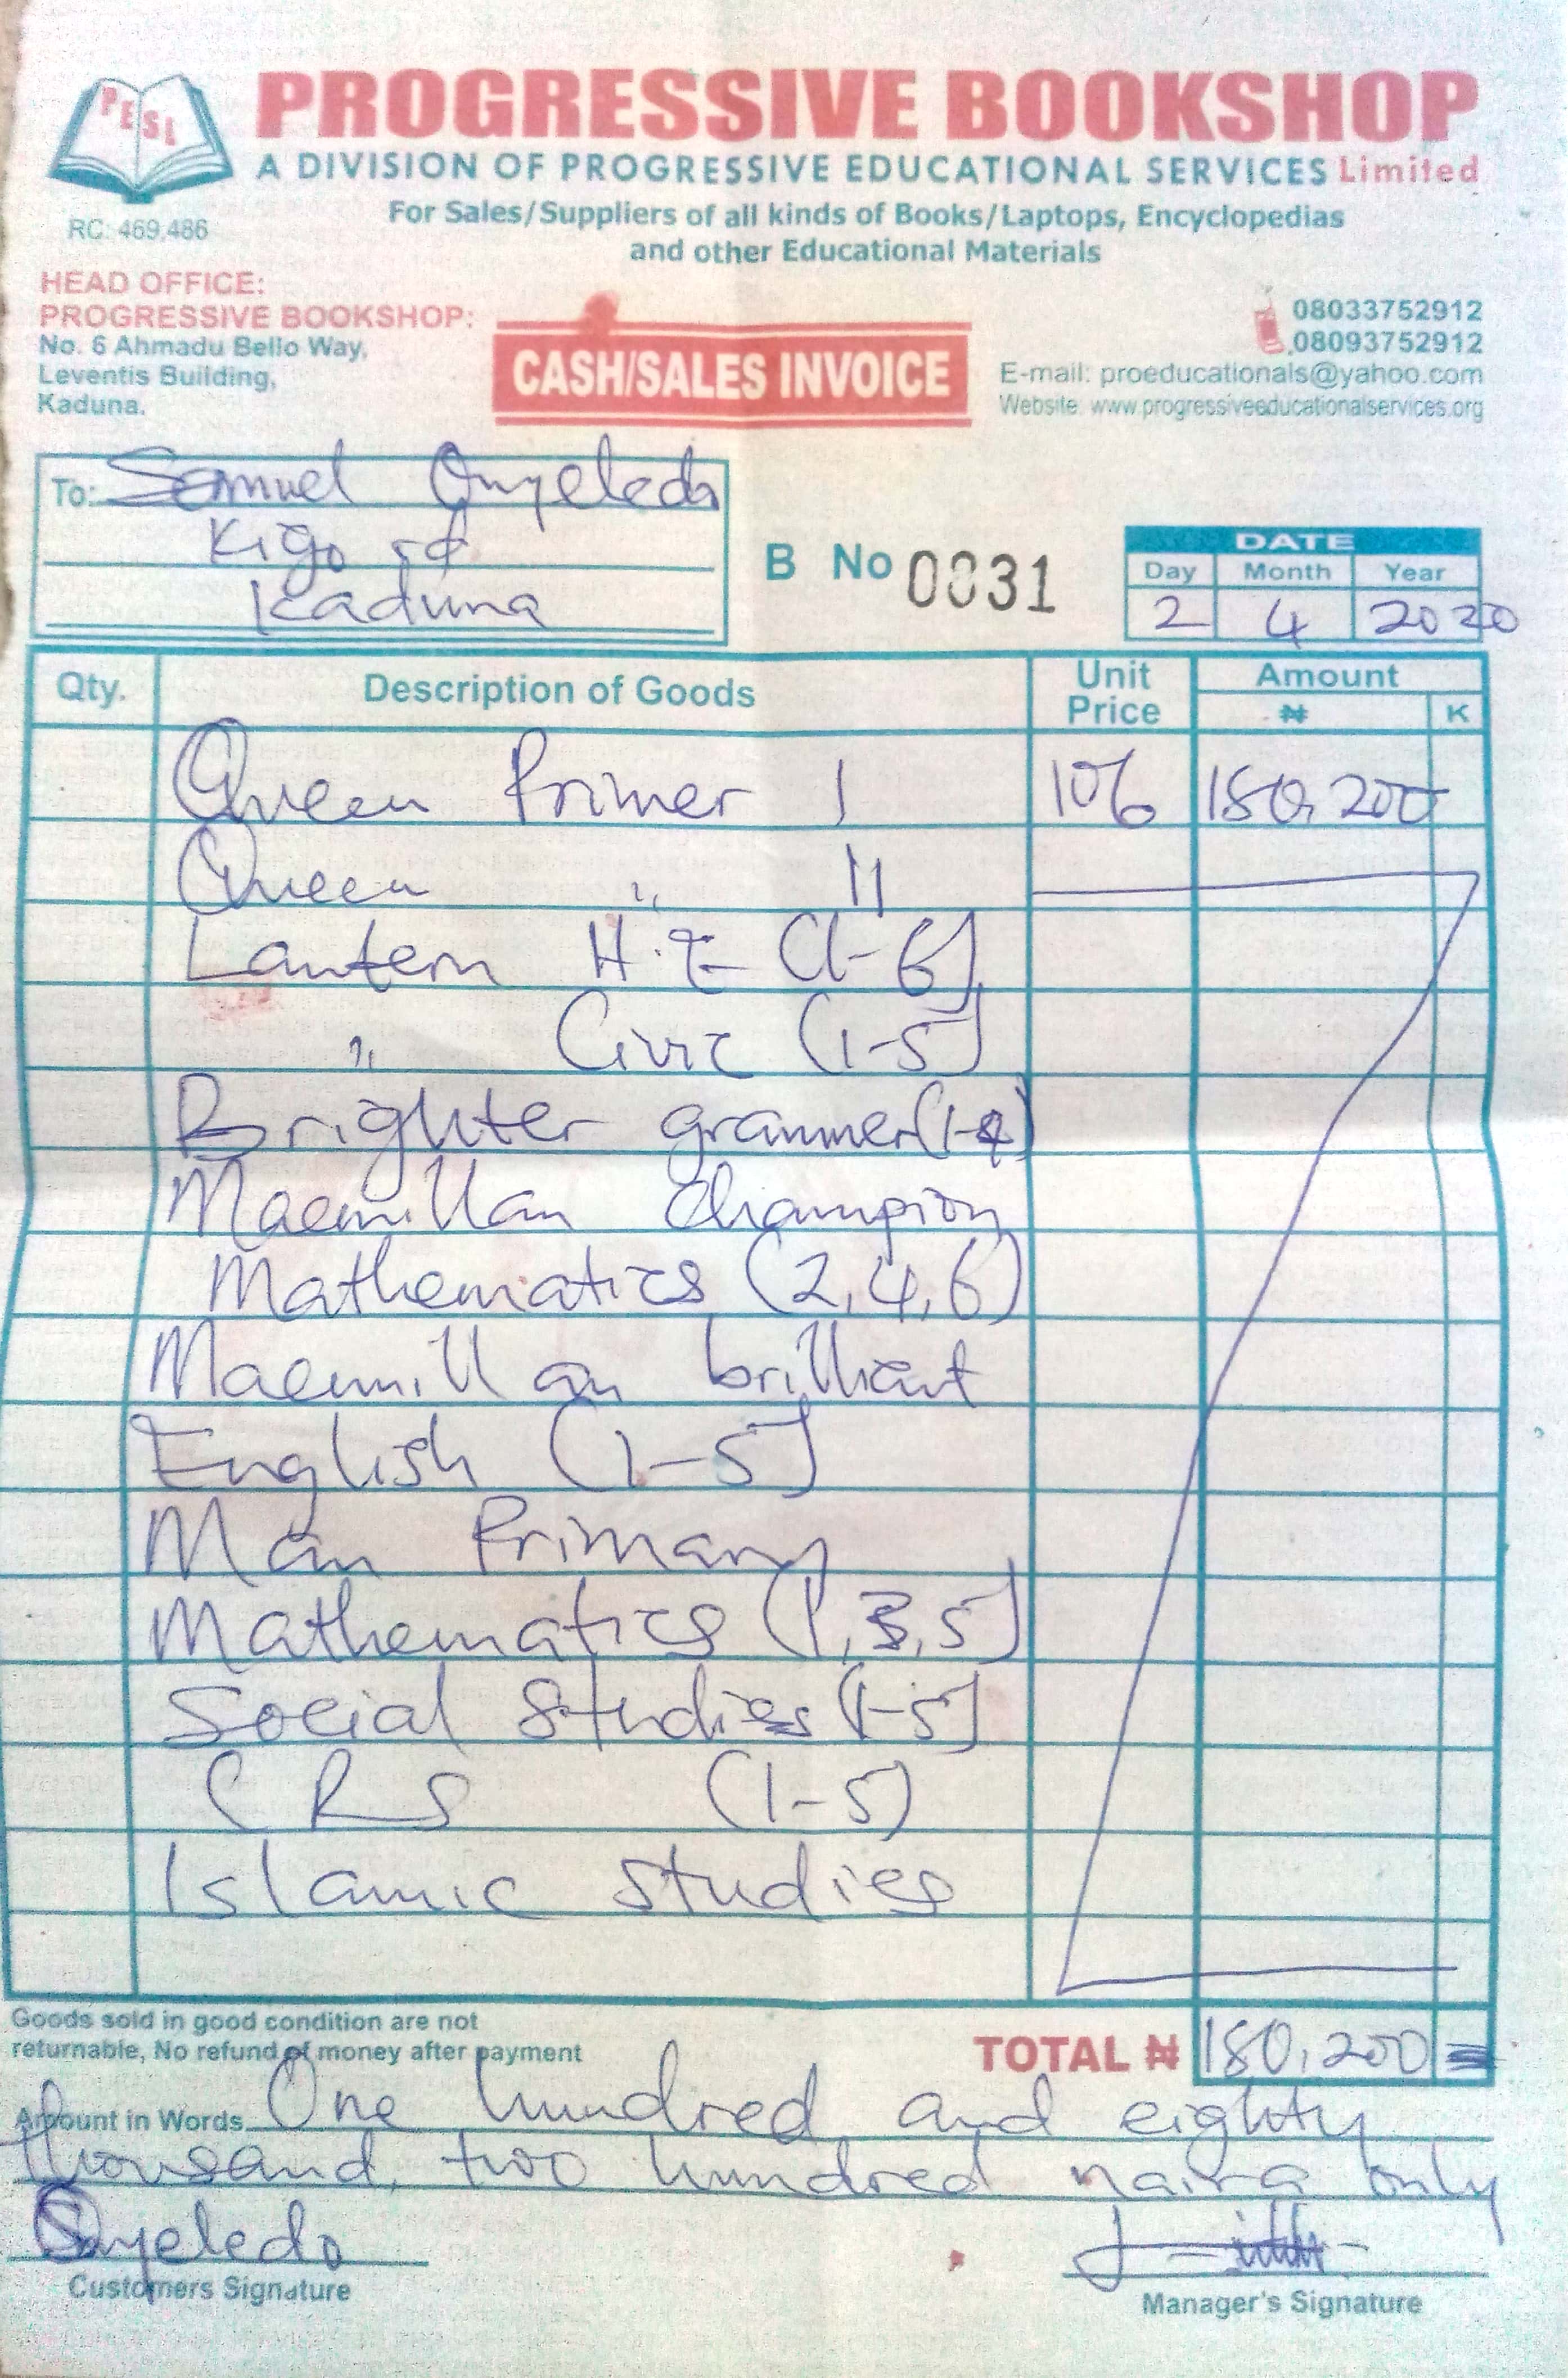 PESL
PROGRESSIVE BOOKSHOP
A DIVISION OF PROGRESSIVE EDUCATIONAL SERVICES Limited
For Sales/Suppliers of all kinds of Books/Laptops, Encyclopedias
and other Educational Materials
RC: 469,486
HEAD OFFICE:
PROGRESSIVE BOOKSHOP:
No. 6 Ahmadu Bello Way,
Leventis Building,
Kaduna.
CASH/SALES INVOICE
08033752912
08093752912
E-mail: proeducationals@yahoo.com
Website: www.progressiveeducationalservices.org
To: Samuel Onyeledo
Kigo rd
Kaduna
B No 0031
DATE
Day Month Year
2 4 2020
Qty. Description of Goods Unit Price Amount
₦ K
Queen Primer I 106 180,200
Queen " II
Lantern H.E (1-6)
" Civic (1-5)
Brighter grammer (1-4)
Macmillan Champion
Mathematics (2,4,6)
Macmillan brilliant
English (1-5)
Man Primary
Mathematics (1,3,5)
Social Studies (1-5)
CRS (1-5)
Islamic Studies
Goods sold in good condition are not
returnable, No refund of money after payment
TOTAL ₦ 180,200 =
Amount in Words One hundred and eighty
thousand, two hundred naira only
Onyeledo
Customers Signature
Manager's Signature